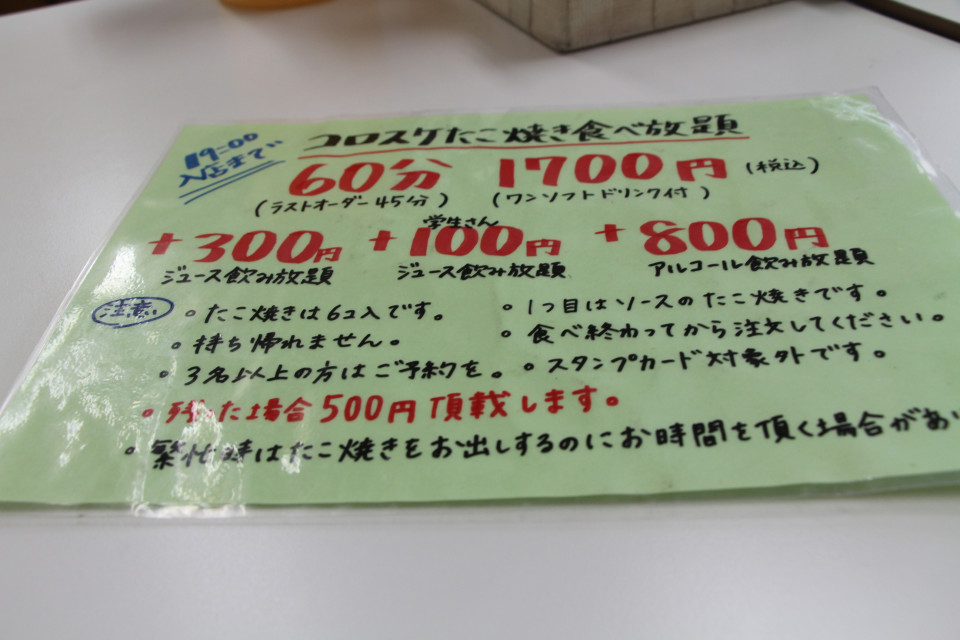 19:00
入店まで
コロスケたこ焼き食べ放題
60分 1700円 (税込)
(ラストオーダー45分) (ワンソフトドリンク付)
学生さん
+300円 +100円 +800円
ジュース飲み放題 ジュース飲み放題 アルコール飲み放題
注意 。たこ焼きは6コ入です。 。1つ目はソースのたこ焼きです。
。持ち帰れません。 。食べ終わってから注文してください。
。3名以上の方はご予約を。 。スタンプカード対象外です。
。残った場合500円頂戴します。
。繁忙時はたこ焼きをお出しするのにお時間を頂く場合があ